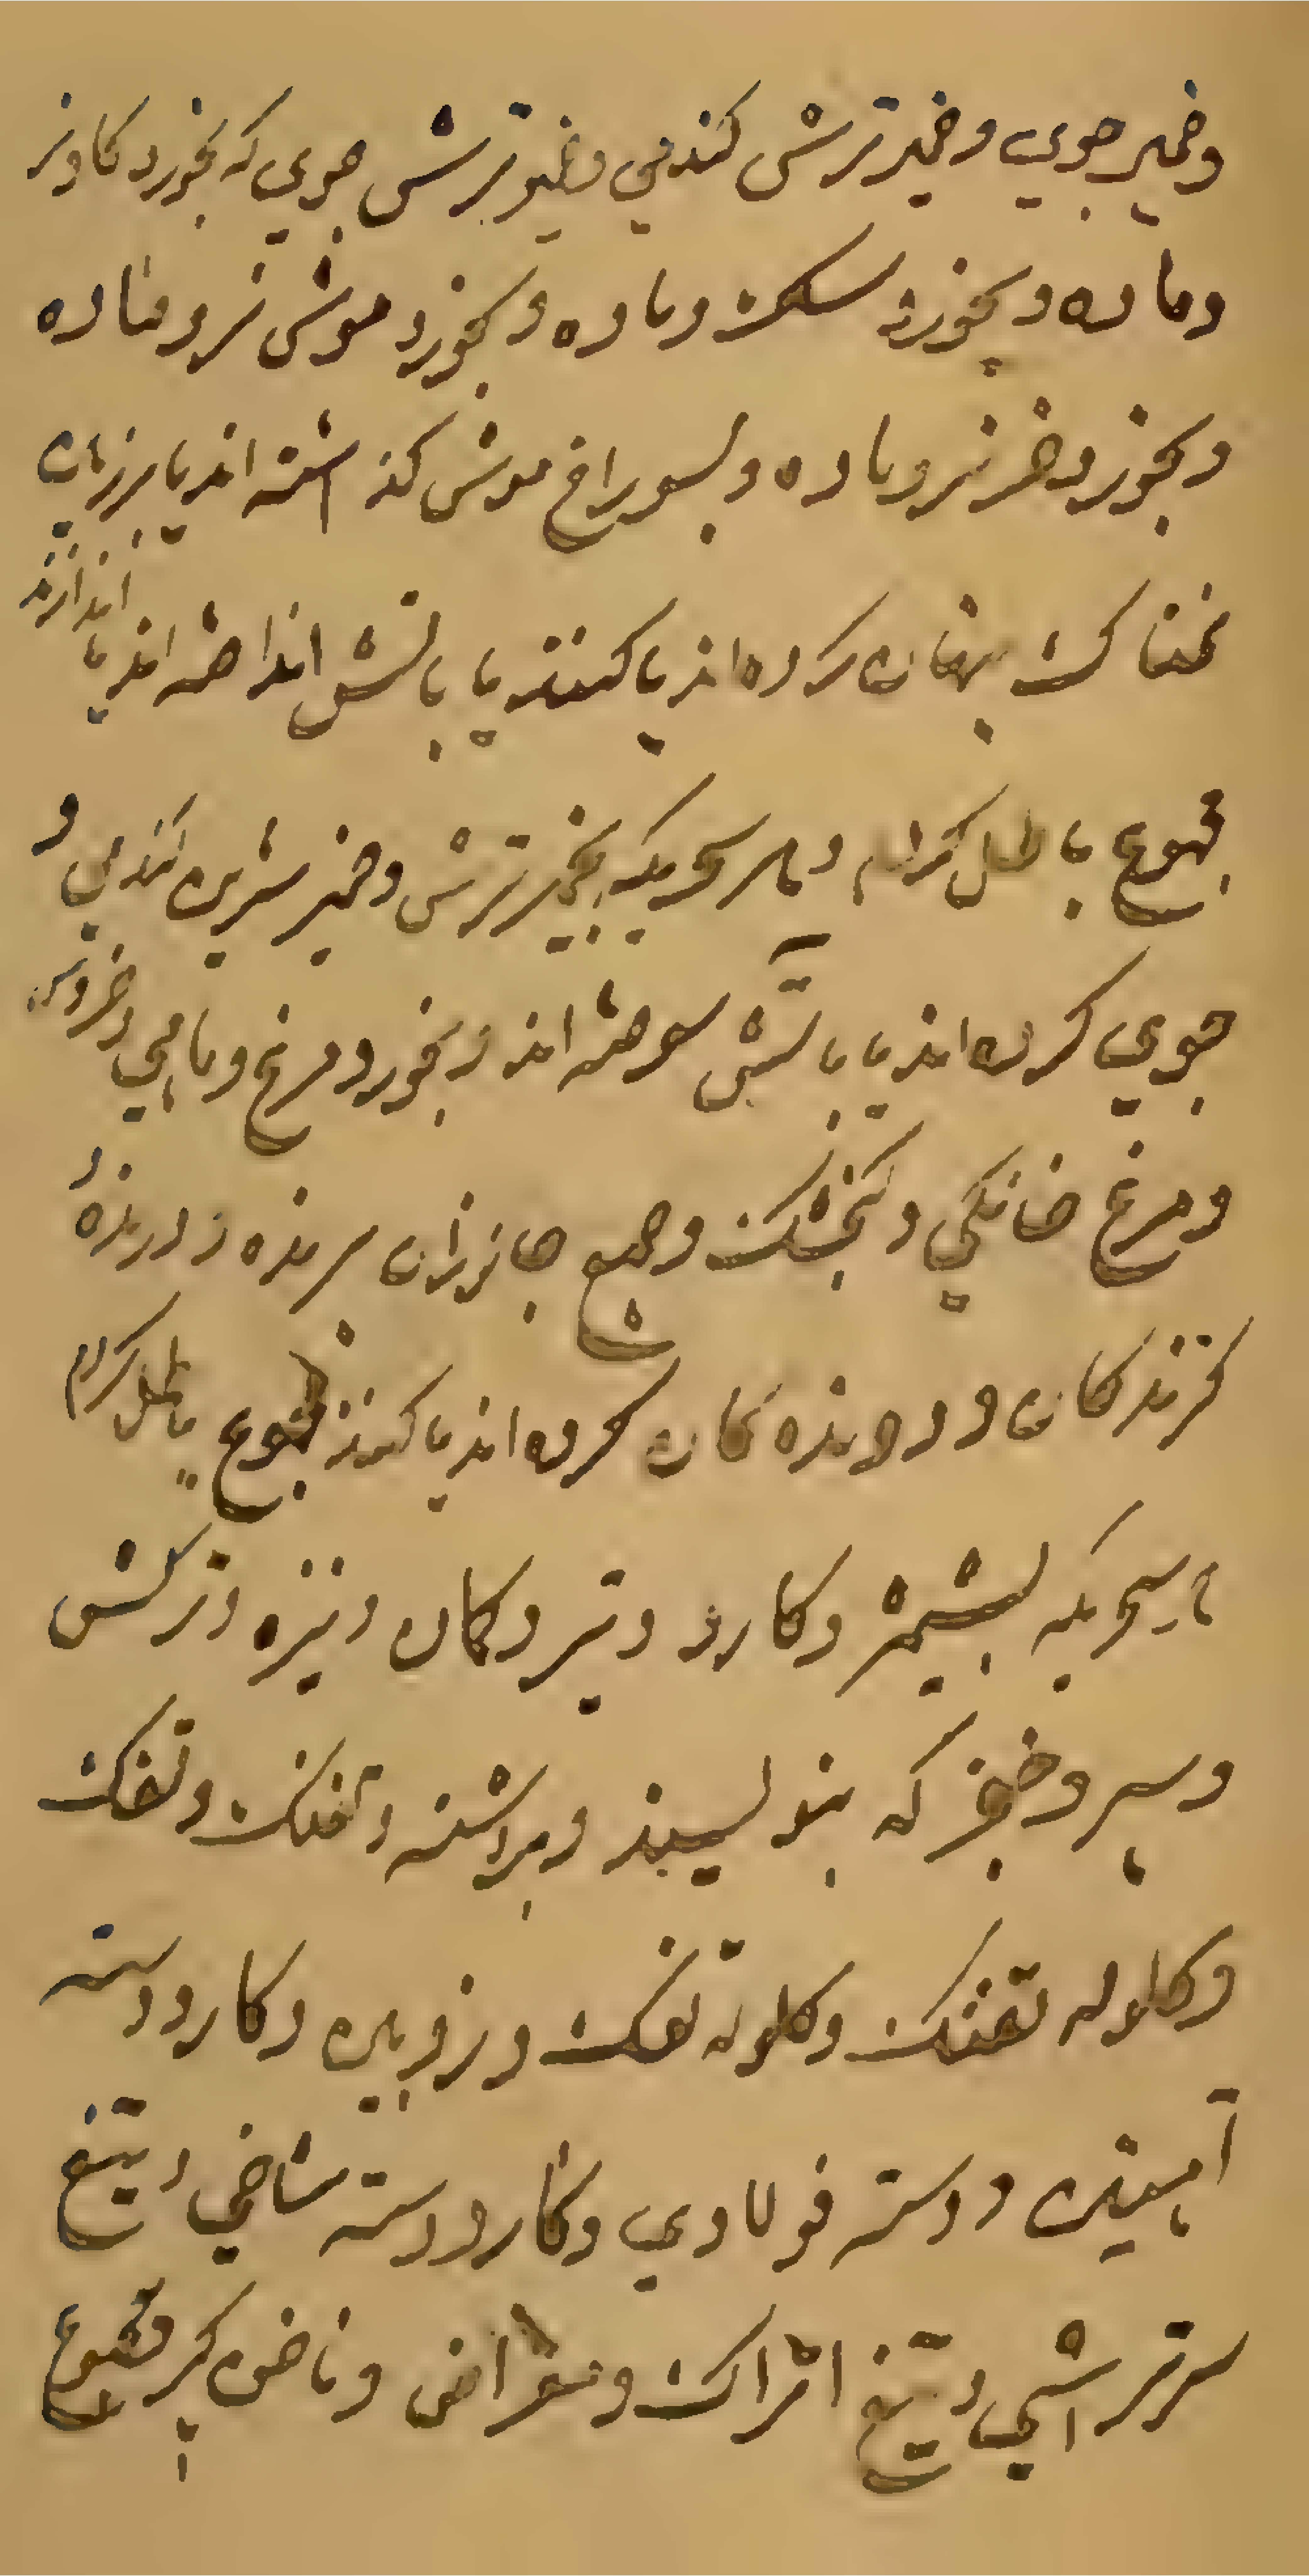 وخمیر جوی وخمیر ترش کندمی وخمیر ترش جوی که بخورد کاو نر
وماده و بخورد سک وماده و بخورد موش نر وماده
و بخورد خر نر وماده و بسوراخ موش کذاشته اند یا برزمین
نمناک پنهان کرده اند یا کنند یا باتش انداخته اند یا اندازند
مجموع باطل کردم وهر سحریکه بخمیر ترش وخمیر شیرین کندمی و
جوی کرده اند یا باتش سوخته اند و بخورد مرغ وماهی وخروس
ومرغ خانکی و کنجشک وجمیع جانوران پرنده و درنده و
کزندکان و دوندەکان کرده اند یا کنند مجموع باطل کردم
هر سحریکه بشمشیر وکارد وتیر وکمان ونیزه وترکش
وسپر وخنجر که بنویسند وبراشنه وتفنک وتفک
وکلوله تفنک وکلوله تفک و زوبین وکارد دسته
آهنین ودسته فولادی وکارد دسته شاخی وتیغ
سرتراشی وتیغ اتراک ومقراض وناخن کیر مجموع